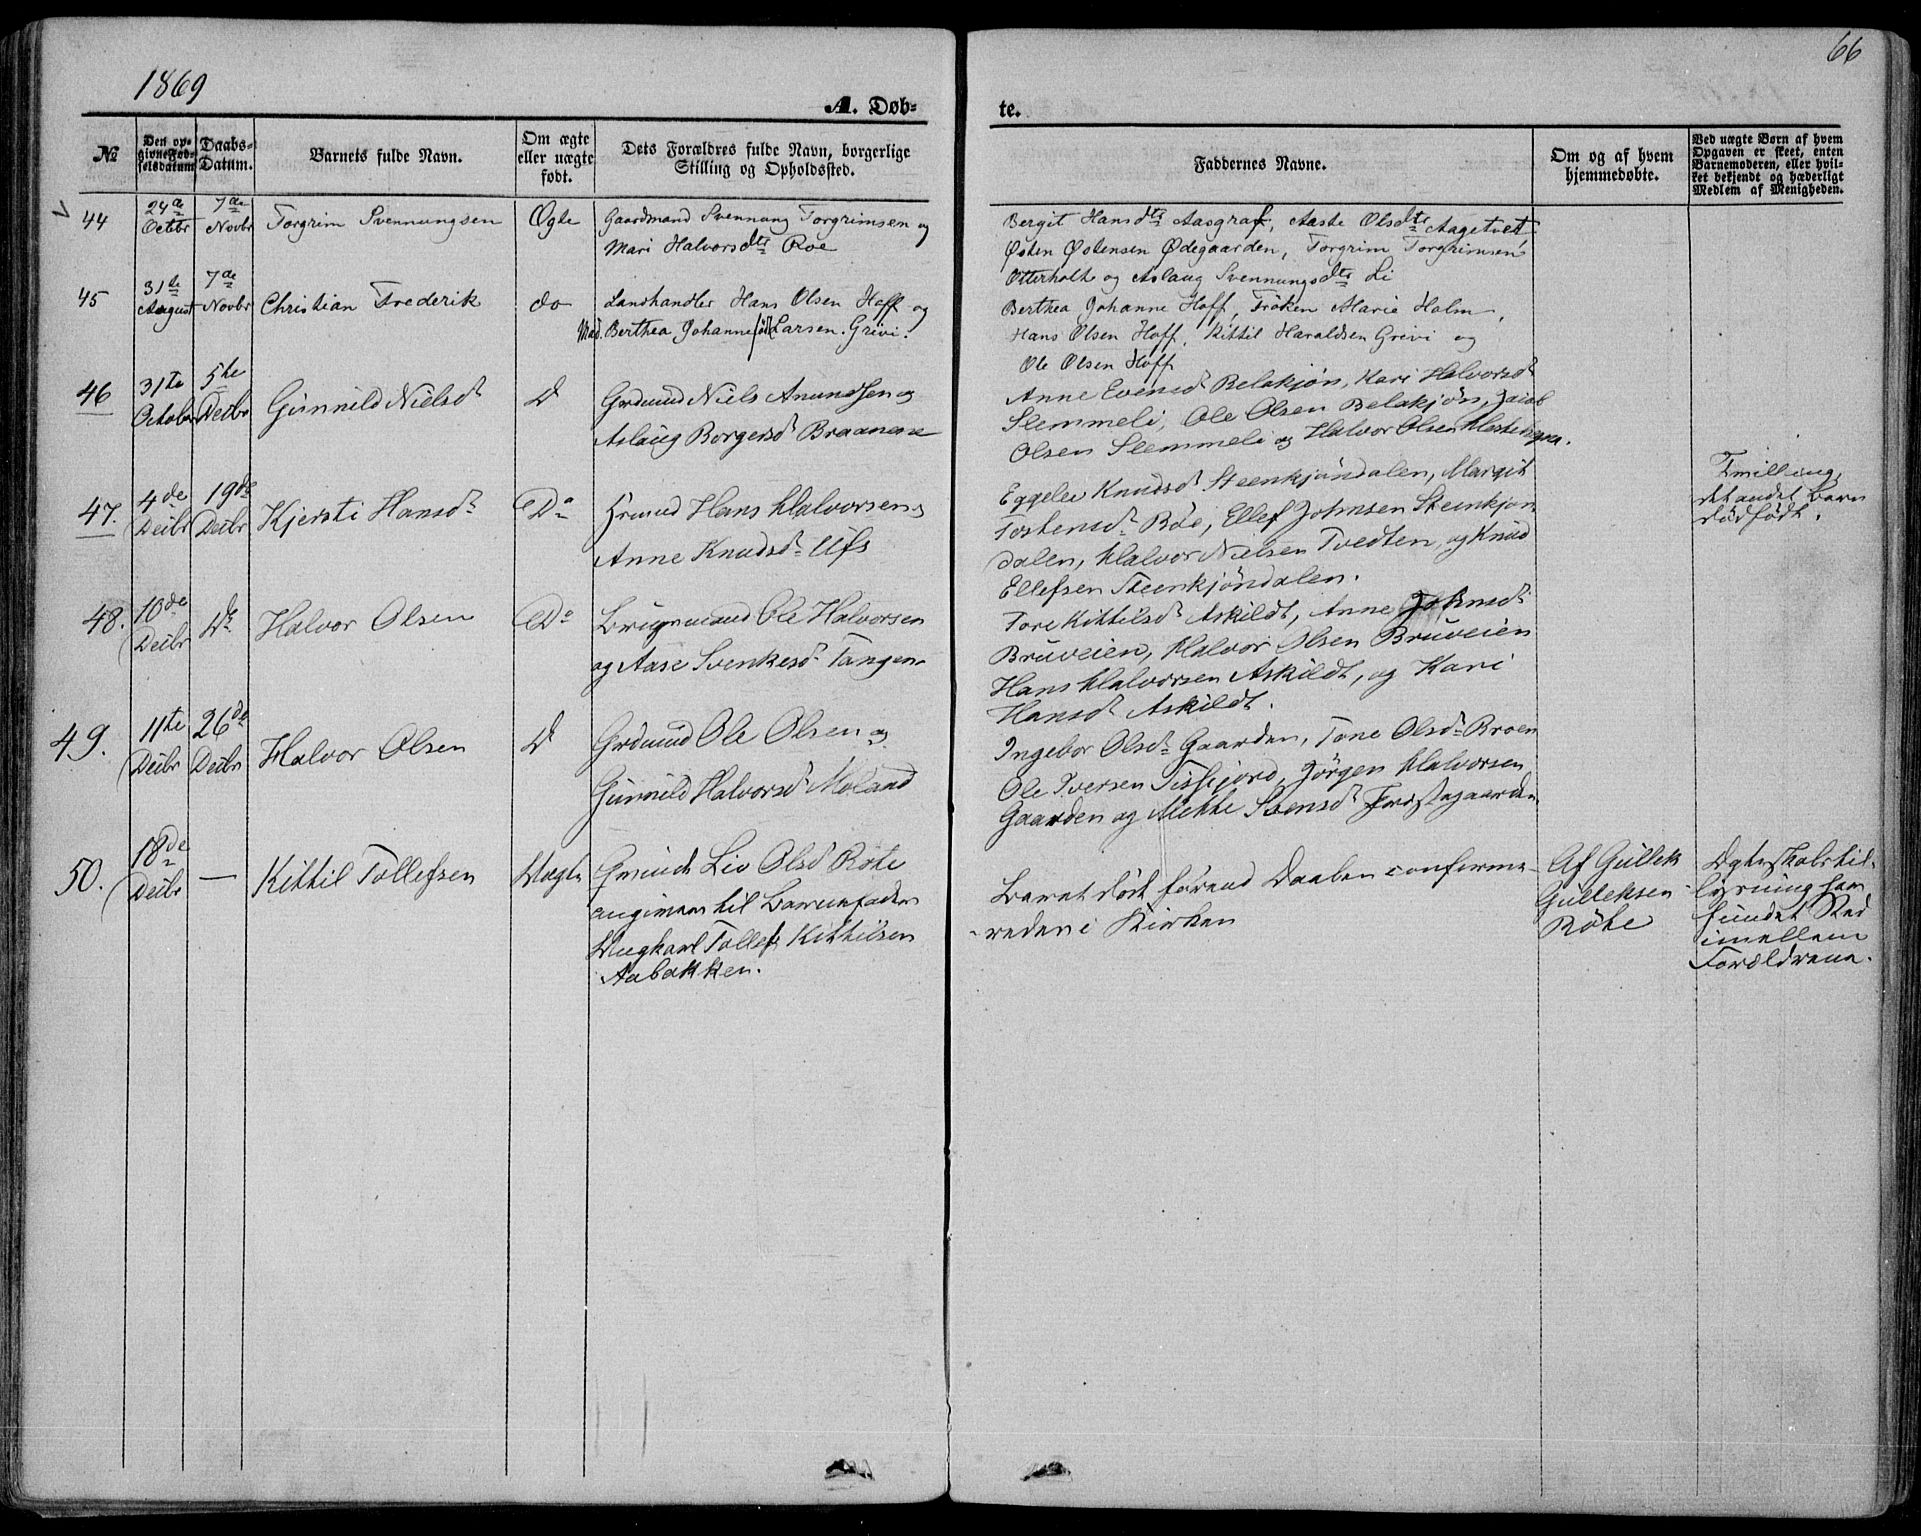 1869
66
A. Døb-
te.
№
Den op-
givne Fød-
selsdatum
Daabs-
Datum.
Barnets fulde Navn.
Om ægte
eller uægte
født.
Dets Forældres fulde Navn, borgerlige
Stilling og Opholdssted.
Faddernes Navne.
Om og af hvem
hjemmedøbte.
Ved uægte Børn af hvem
Opgaven er skeet, enten
Barnemoderen, eller hvil-
ket bekjendt og hæderligt
Medlem af Menigheden.
44
24de
Octbr
7de
Novbr
Torgrim Svennungsen
Ægte
Gaardmand Svennung Torgrimsen og
Mari Halvorsdtr Roe
Bergit Hansdtr Aasgraf, Aaste Olsdtr Aagetvet,
Østen Østensen Ødegaarden, Torgrim Torgrimsen
Otterholt og Aslaug Svennungsdtr Li
45
31te
August
7de
Novbr
Christian Frederik
do
Landhandler Hans Olsen Hoff og
Mad. Berthea Johanne født Larsen. Grivi.
Berthea Johanne Hoff, Frøken Marie Holm,
Hans Olsen Hoff, Kittil Haraldsen Grivi og
Ole Olsen Hoff
46
31te
October
5te
Decbr
Gunnild Nielsd
D
Grdmnd Niels Anundsen og
Aslaug Borgersd Braanene
Anne Evensd Belakjøn, Kari Halvorsd
Slemmeli, Ole Olsen Belakjøn, Jacob
Olsen Slemmeli og Halvor Olsen
47.
4de
Decbr
19de
Decbr
Kjersti Hansd
Do
Hans Halvorsen og
Anne Knudsd Ufs
Knudsd Steenkjøndalen, Margit
Tostensd Roe, Ellef Johnsen Steenkjøn
dalen, Halvor Nielsen Tvedten, og Knud
Ellefsen Steenkjøndalen.
Tvilling,
det andet Barn
dødfødt.
48.
10de
Decbr
Do
Halvor Olsen
Do
Brugsmand Ole Halvorsen
og Aase Svenkesd Tangen
Tore Kittilsd Askildt, Anne Johnsd
Bruveien, Halvor Olsen Bruveien
Hans Halvorsen Askildt, og Kari
Hansd Askildt.
49.
11te
Decbr
26de
Decbr
Halvor Olsen
D
Grdmnd Ole Olsen og
Gunnild Halvorsd Moland
Ingebor Olsd Gaarden, Tone Olsd Broen
Ole Iversen Tisjord, Jørgen Halvorsen
Gaarden og Mekke Stensd
50.
18de
Decbr
—
Kittil Tollefsen
Uægte
Liv Olsd Røte
angiven til Barnefader
Ungkarl Tollef Kittilsen
Aabakken.
Barnet dødt førend Daaben confirme-
-redes i Kirken
Af Gullek
Gulleksen
Røte
Ægteskabstil-
lysning har
fundet Sted
imellem
Forældrene.